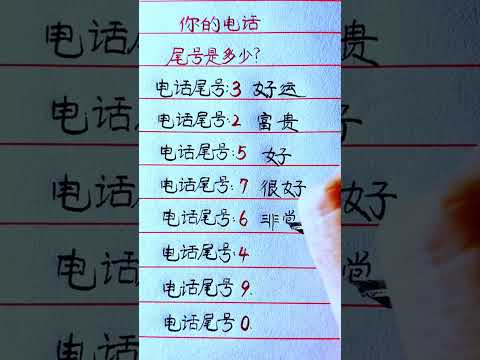 你的电话
尾号是多少?
电话尾号:3 好运
电话尾号:2 富贵
电话尾号:5 好
电话尾号:7 很好
电话尾号:6 非常
电话尾号:4
电话尾号 9.
电话尾号 0.